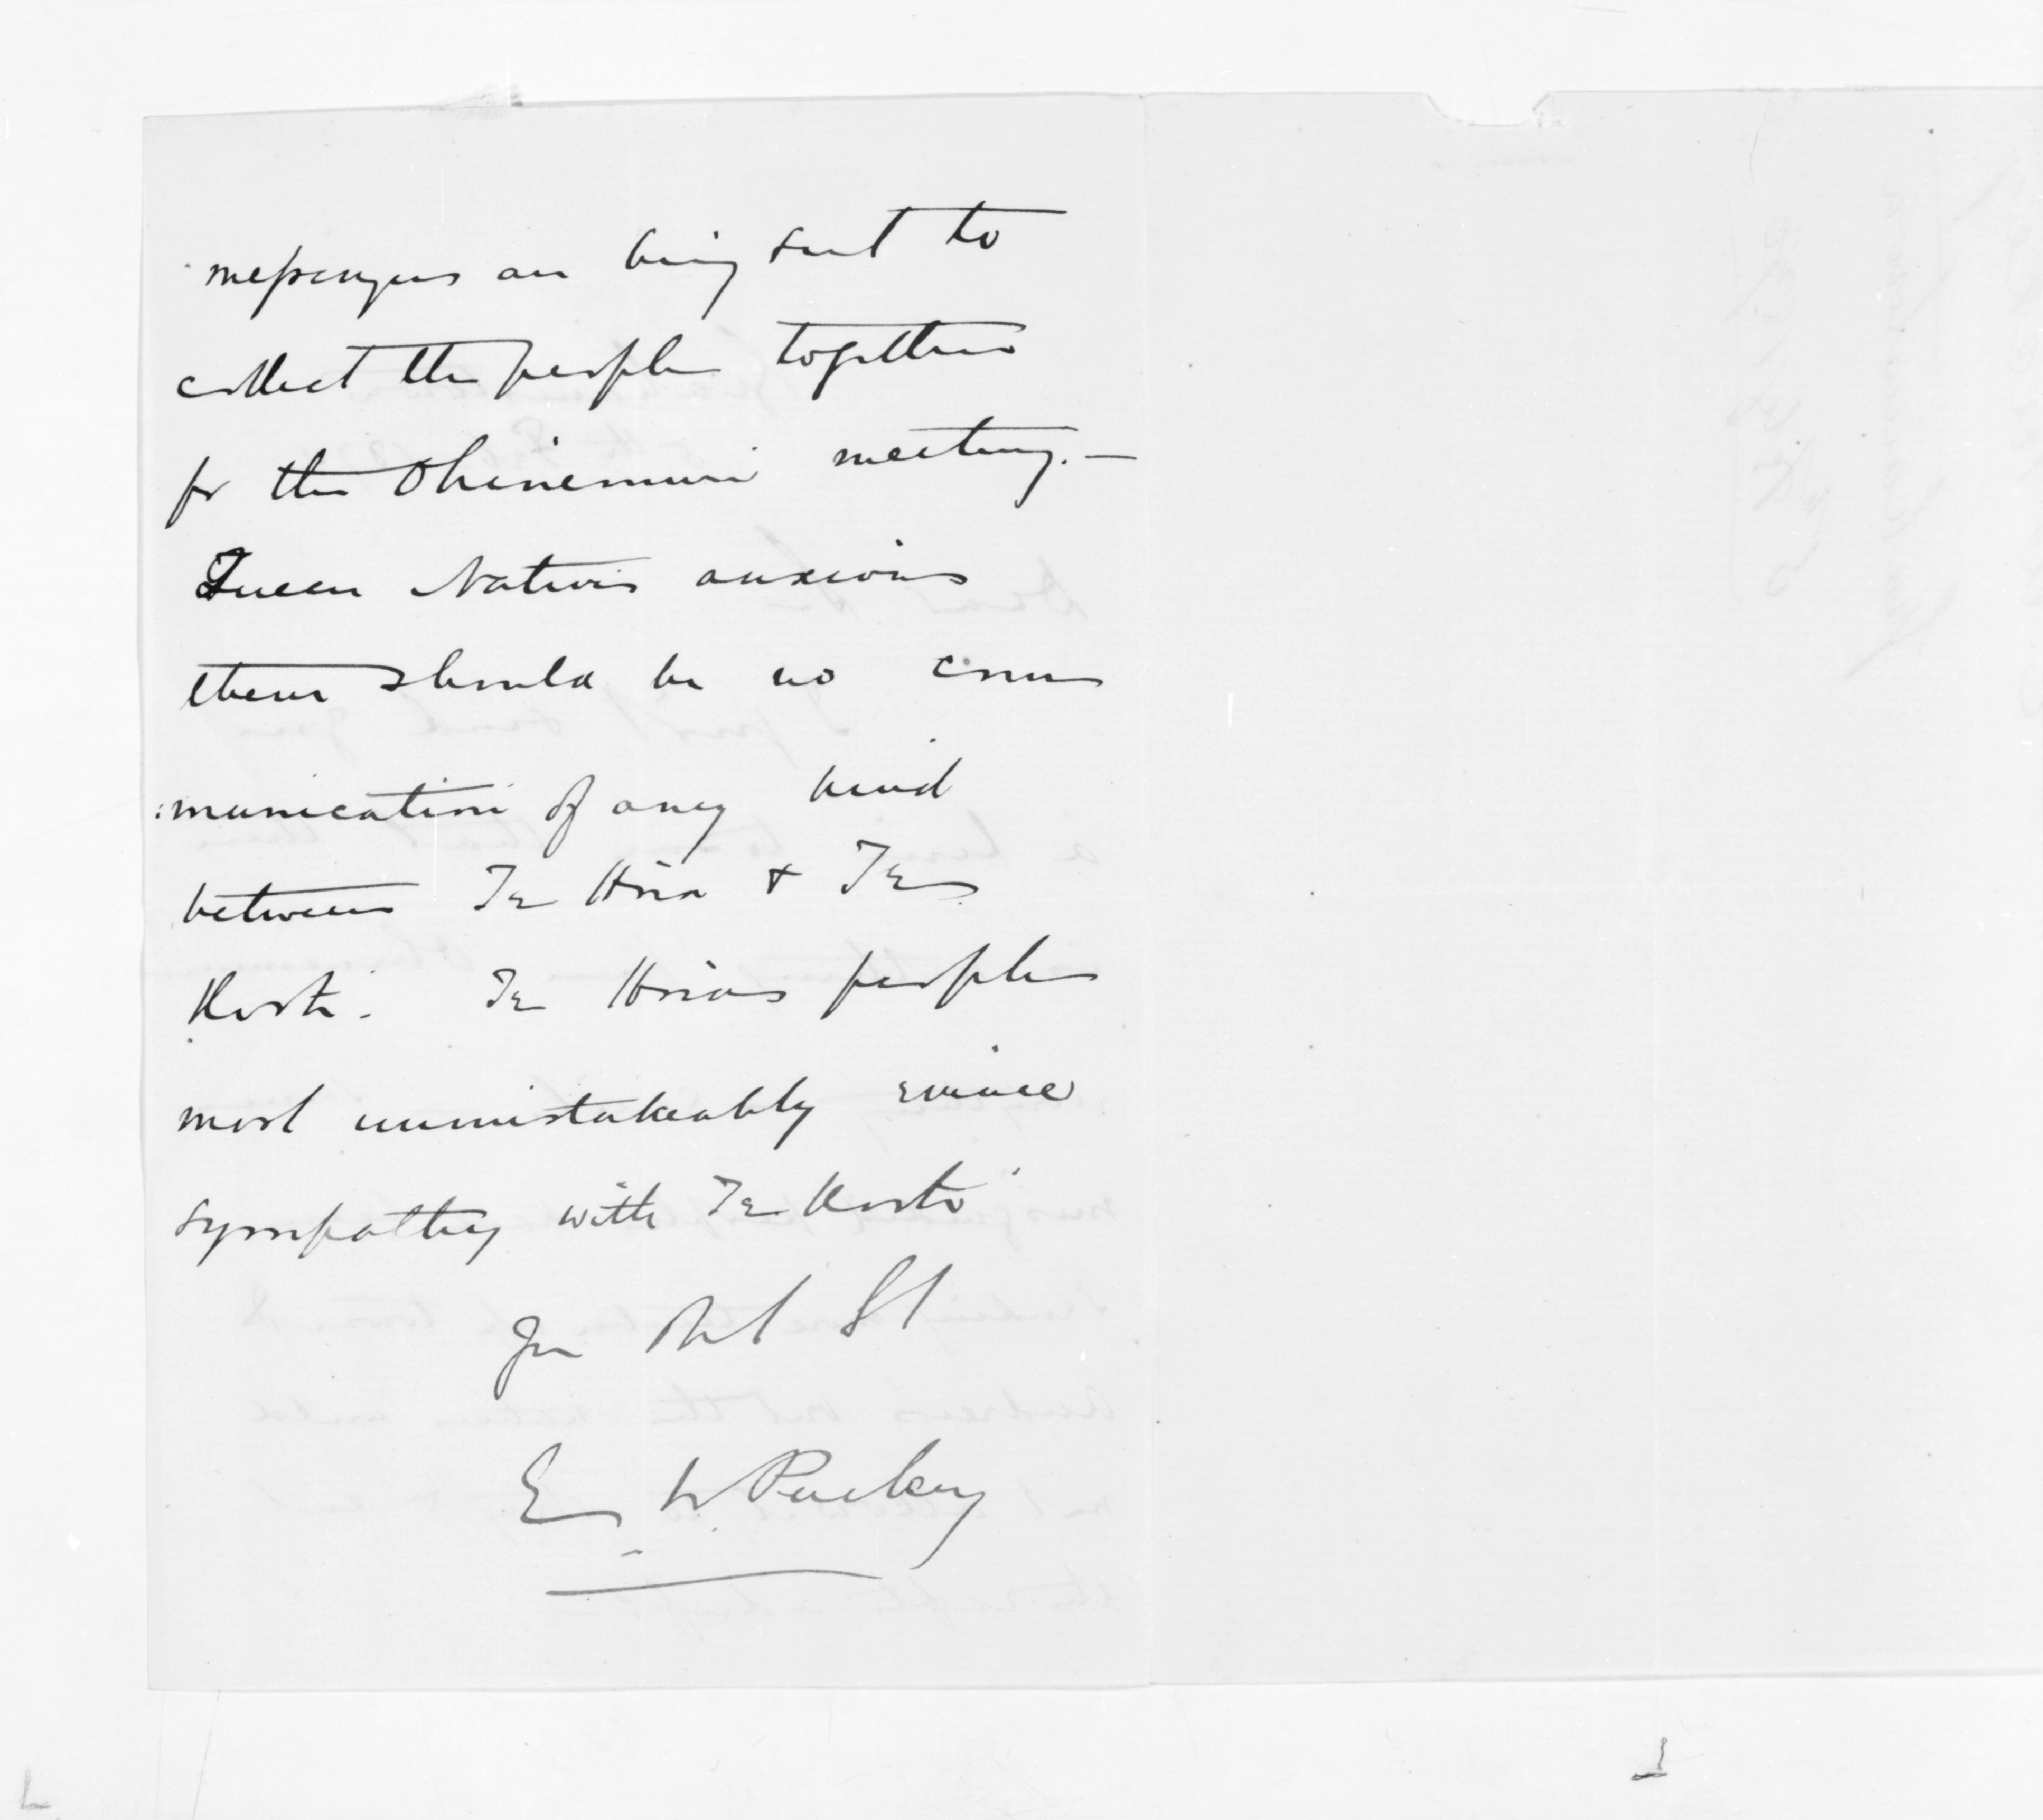 messengers are being sent to
collect the people together
for the Ohinemuri meeting. —
Queen Natives anxious
there should be no com
:munication of any kind
between Te Hira & Te
Kooti. Te Hiras people
most unmistakeably evince
sympathy with Te Kooti
Yr Obt St
E W Puckey